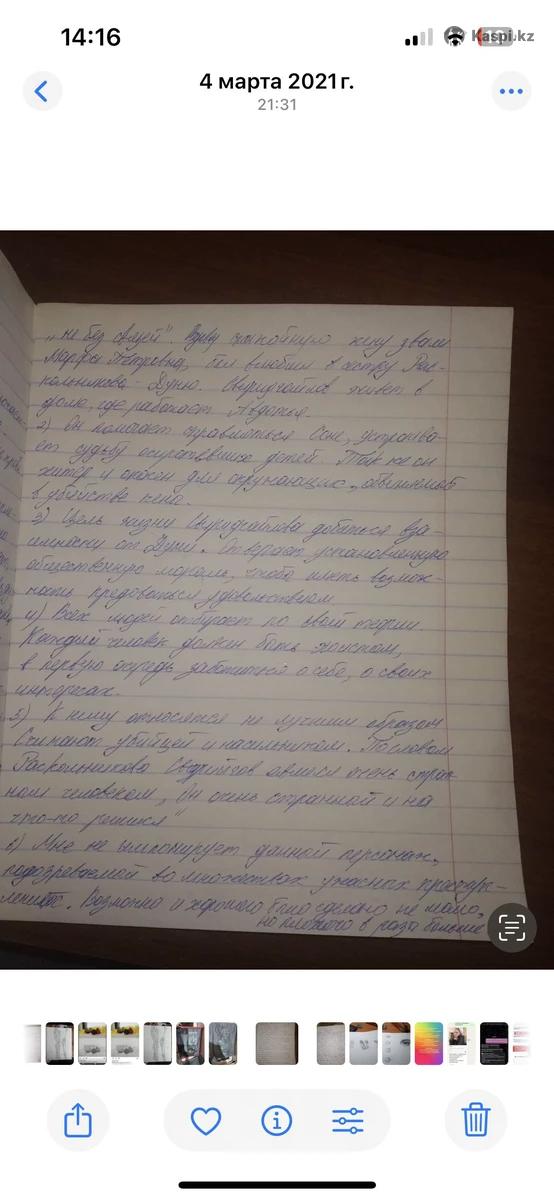 14:16
Kaspi.kz
4 марта 2021 г.
21:31
„не без связей". Вдову покойную жену звали
Марфа Петровна, был влюблён в сестру Рас-
кольникова - Дуню. Свидригайлов живет в
доме, где работает Авдотья.
2) Он помогает справиться Соне, устраива-
ет судьбу осиротевших детей. Так же он
хитер и опасен для окружающих, обвиняемый
в убийстве жены.
3) Цель жизни Свидригайлова добиться вза-
имности от Дуни. Отвергает установленную
общественную мораль, чтобы иметь возмож-
ность предоваться удовольствием.
4) Всех людей отбирает по своей теории.
Каждый человек должен быть эгоистом,
в первую очередь заботиться о себе, о своих
интересах.
5) К нему относятся не лучшим образом
Считают убийцей и насильником. По словам
Раскольникова Свидригайлов очень стран-
ным человеком „Он очень странный и на
что-то решился"
6) Мне не импонирует данный персонаж,
подозреваемый во множествах ужасных преступ-
лений. Возможно и хорошего было сделано не мало,
но плохого в разы больше